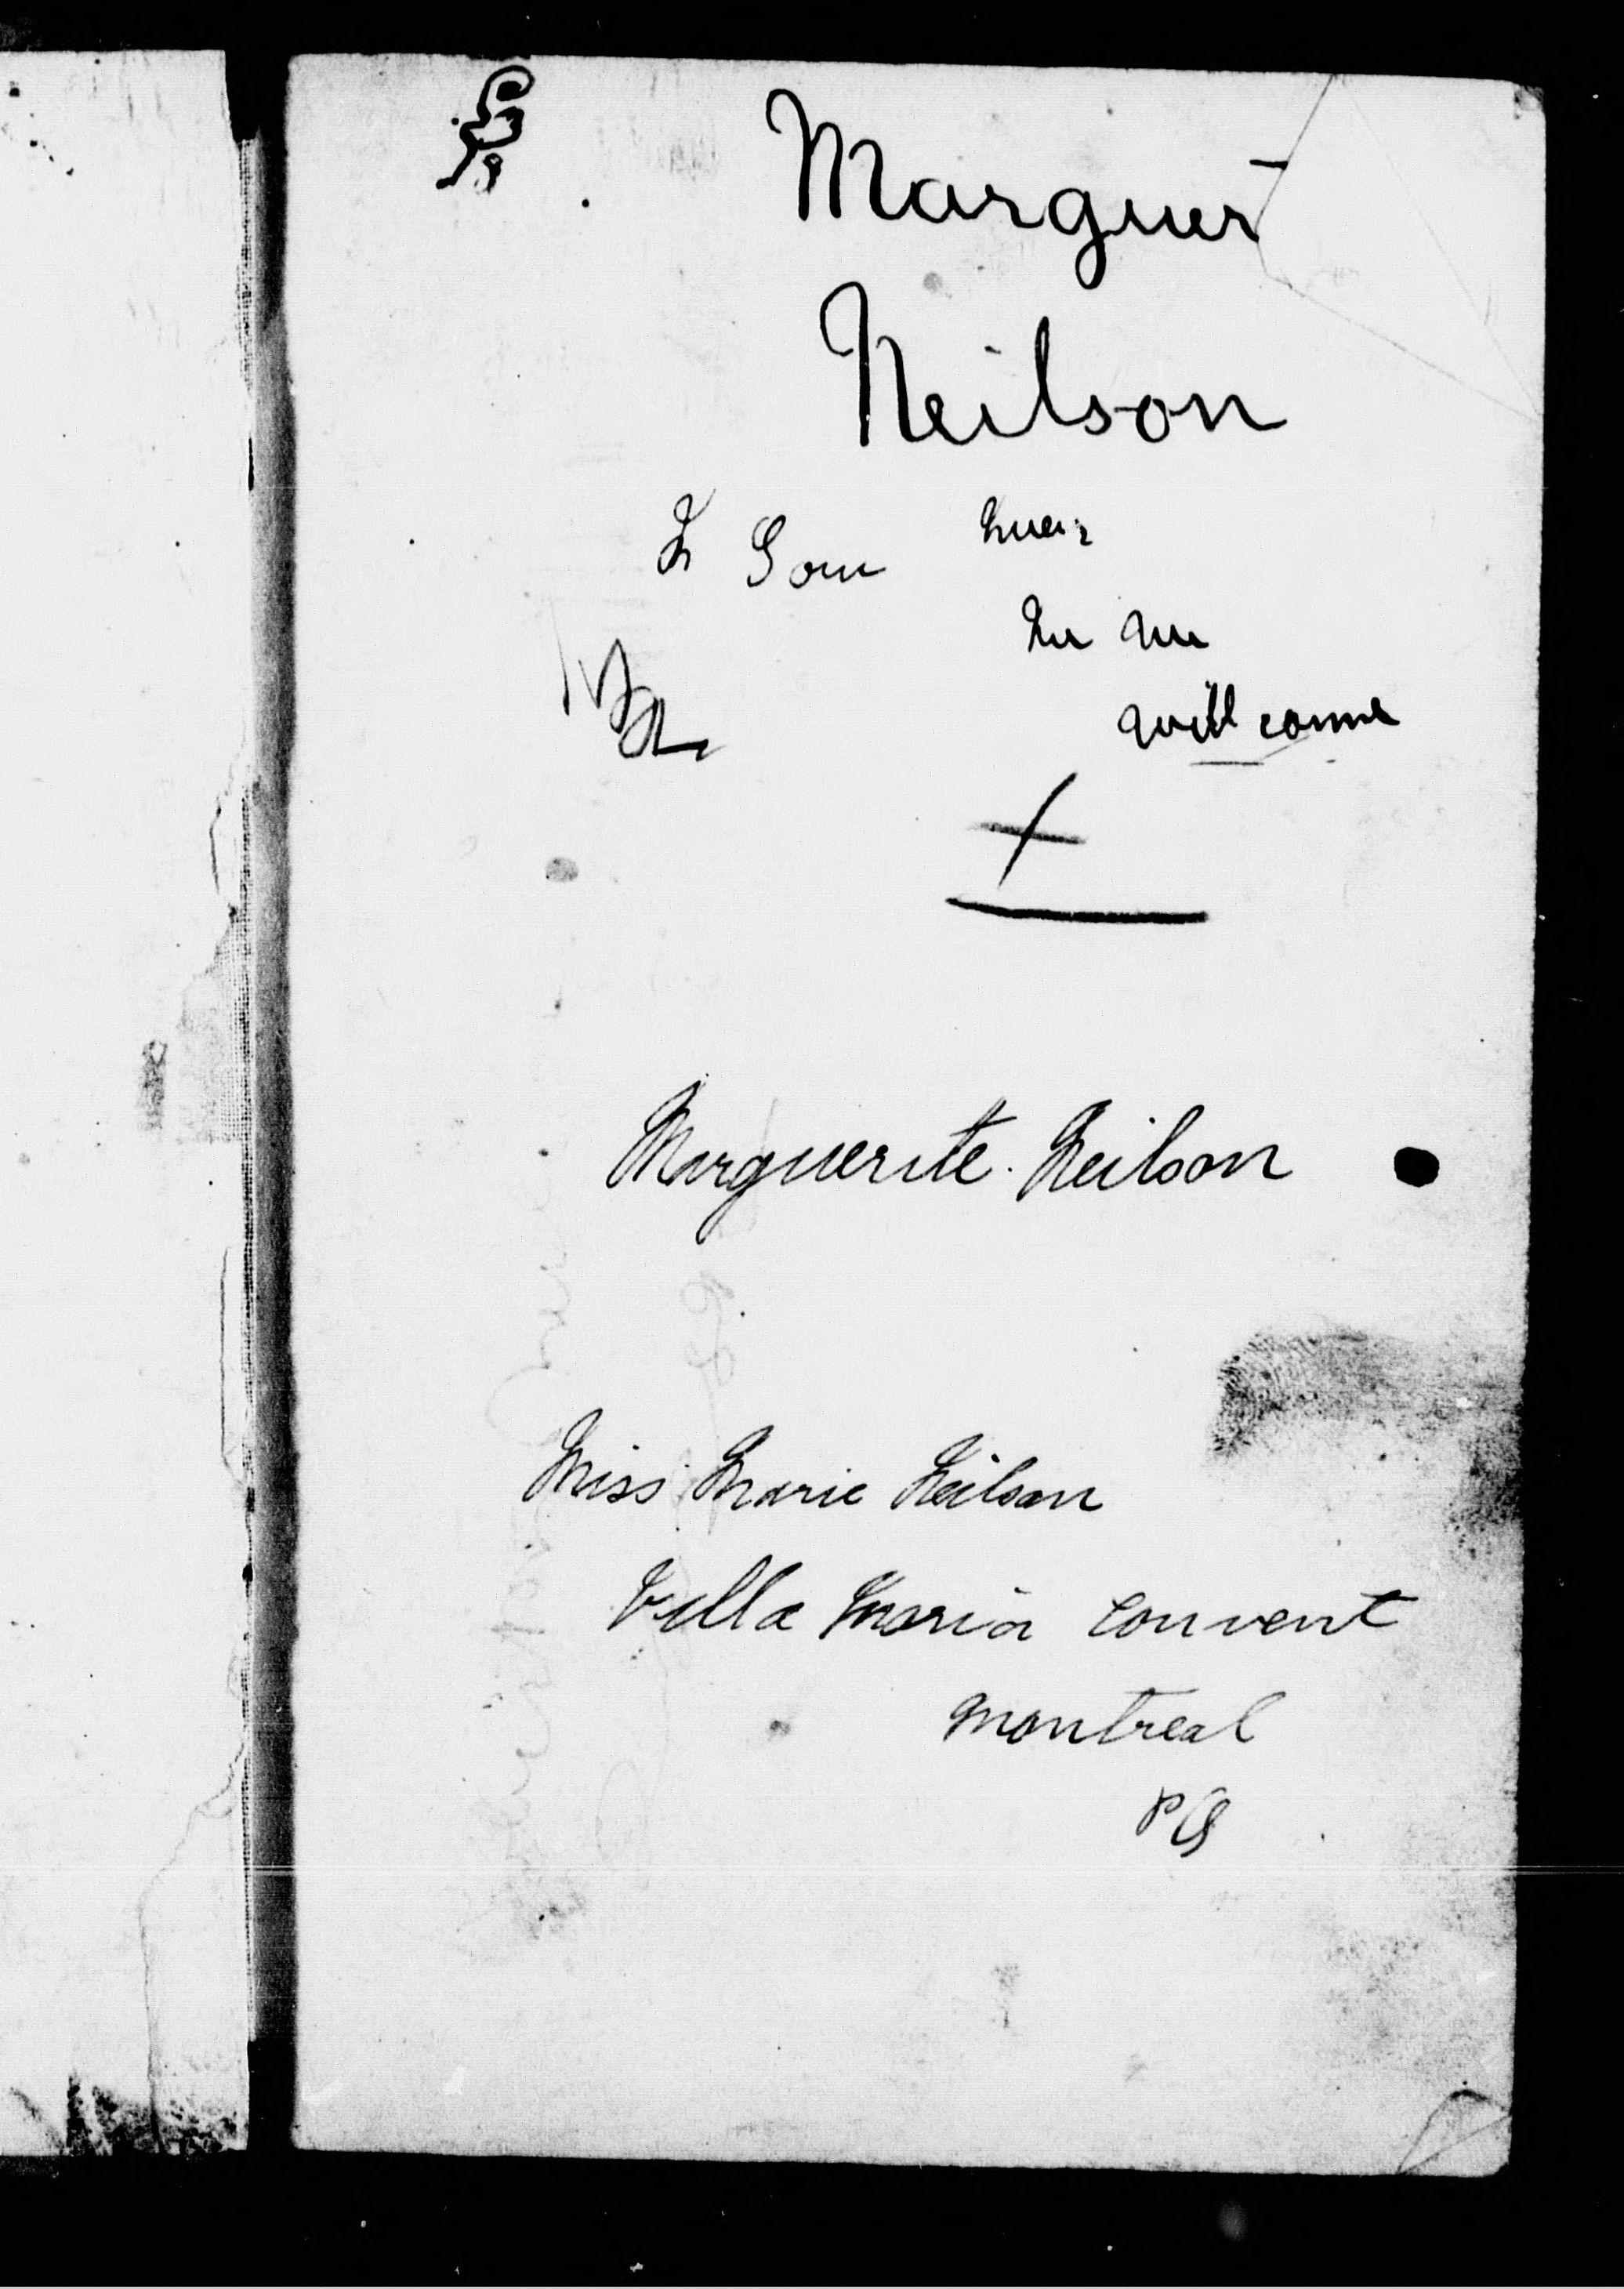 Marguer
Neilson
will come
Marguerite Neilson
Miss Marie Neilson
Villa Maria convent
montreal
PQ